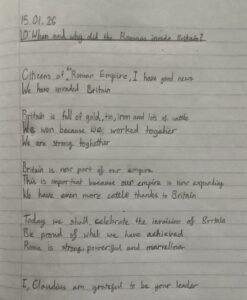 15.01.26
LO When and why did the Romans invade Britain?
Citizens of "Roman Empire, I have good news
We have invaded Britain
Britain is full of gold, tin, iron and lots of cattle
We won because we worked togather
We are strong toghether
Britain is now part of our empire
This is important because our empire is now expanding
We have even more cattle thanks to Britain
Today we shall celebrate the invasion of Britain
Be proud of what we have achieved
Rome is strong, powerful and marvelous
I, Claudius am grateful to be your leader